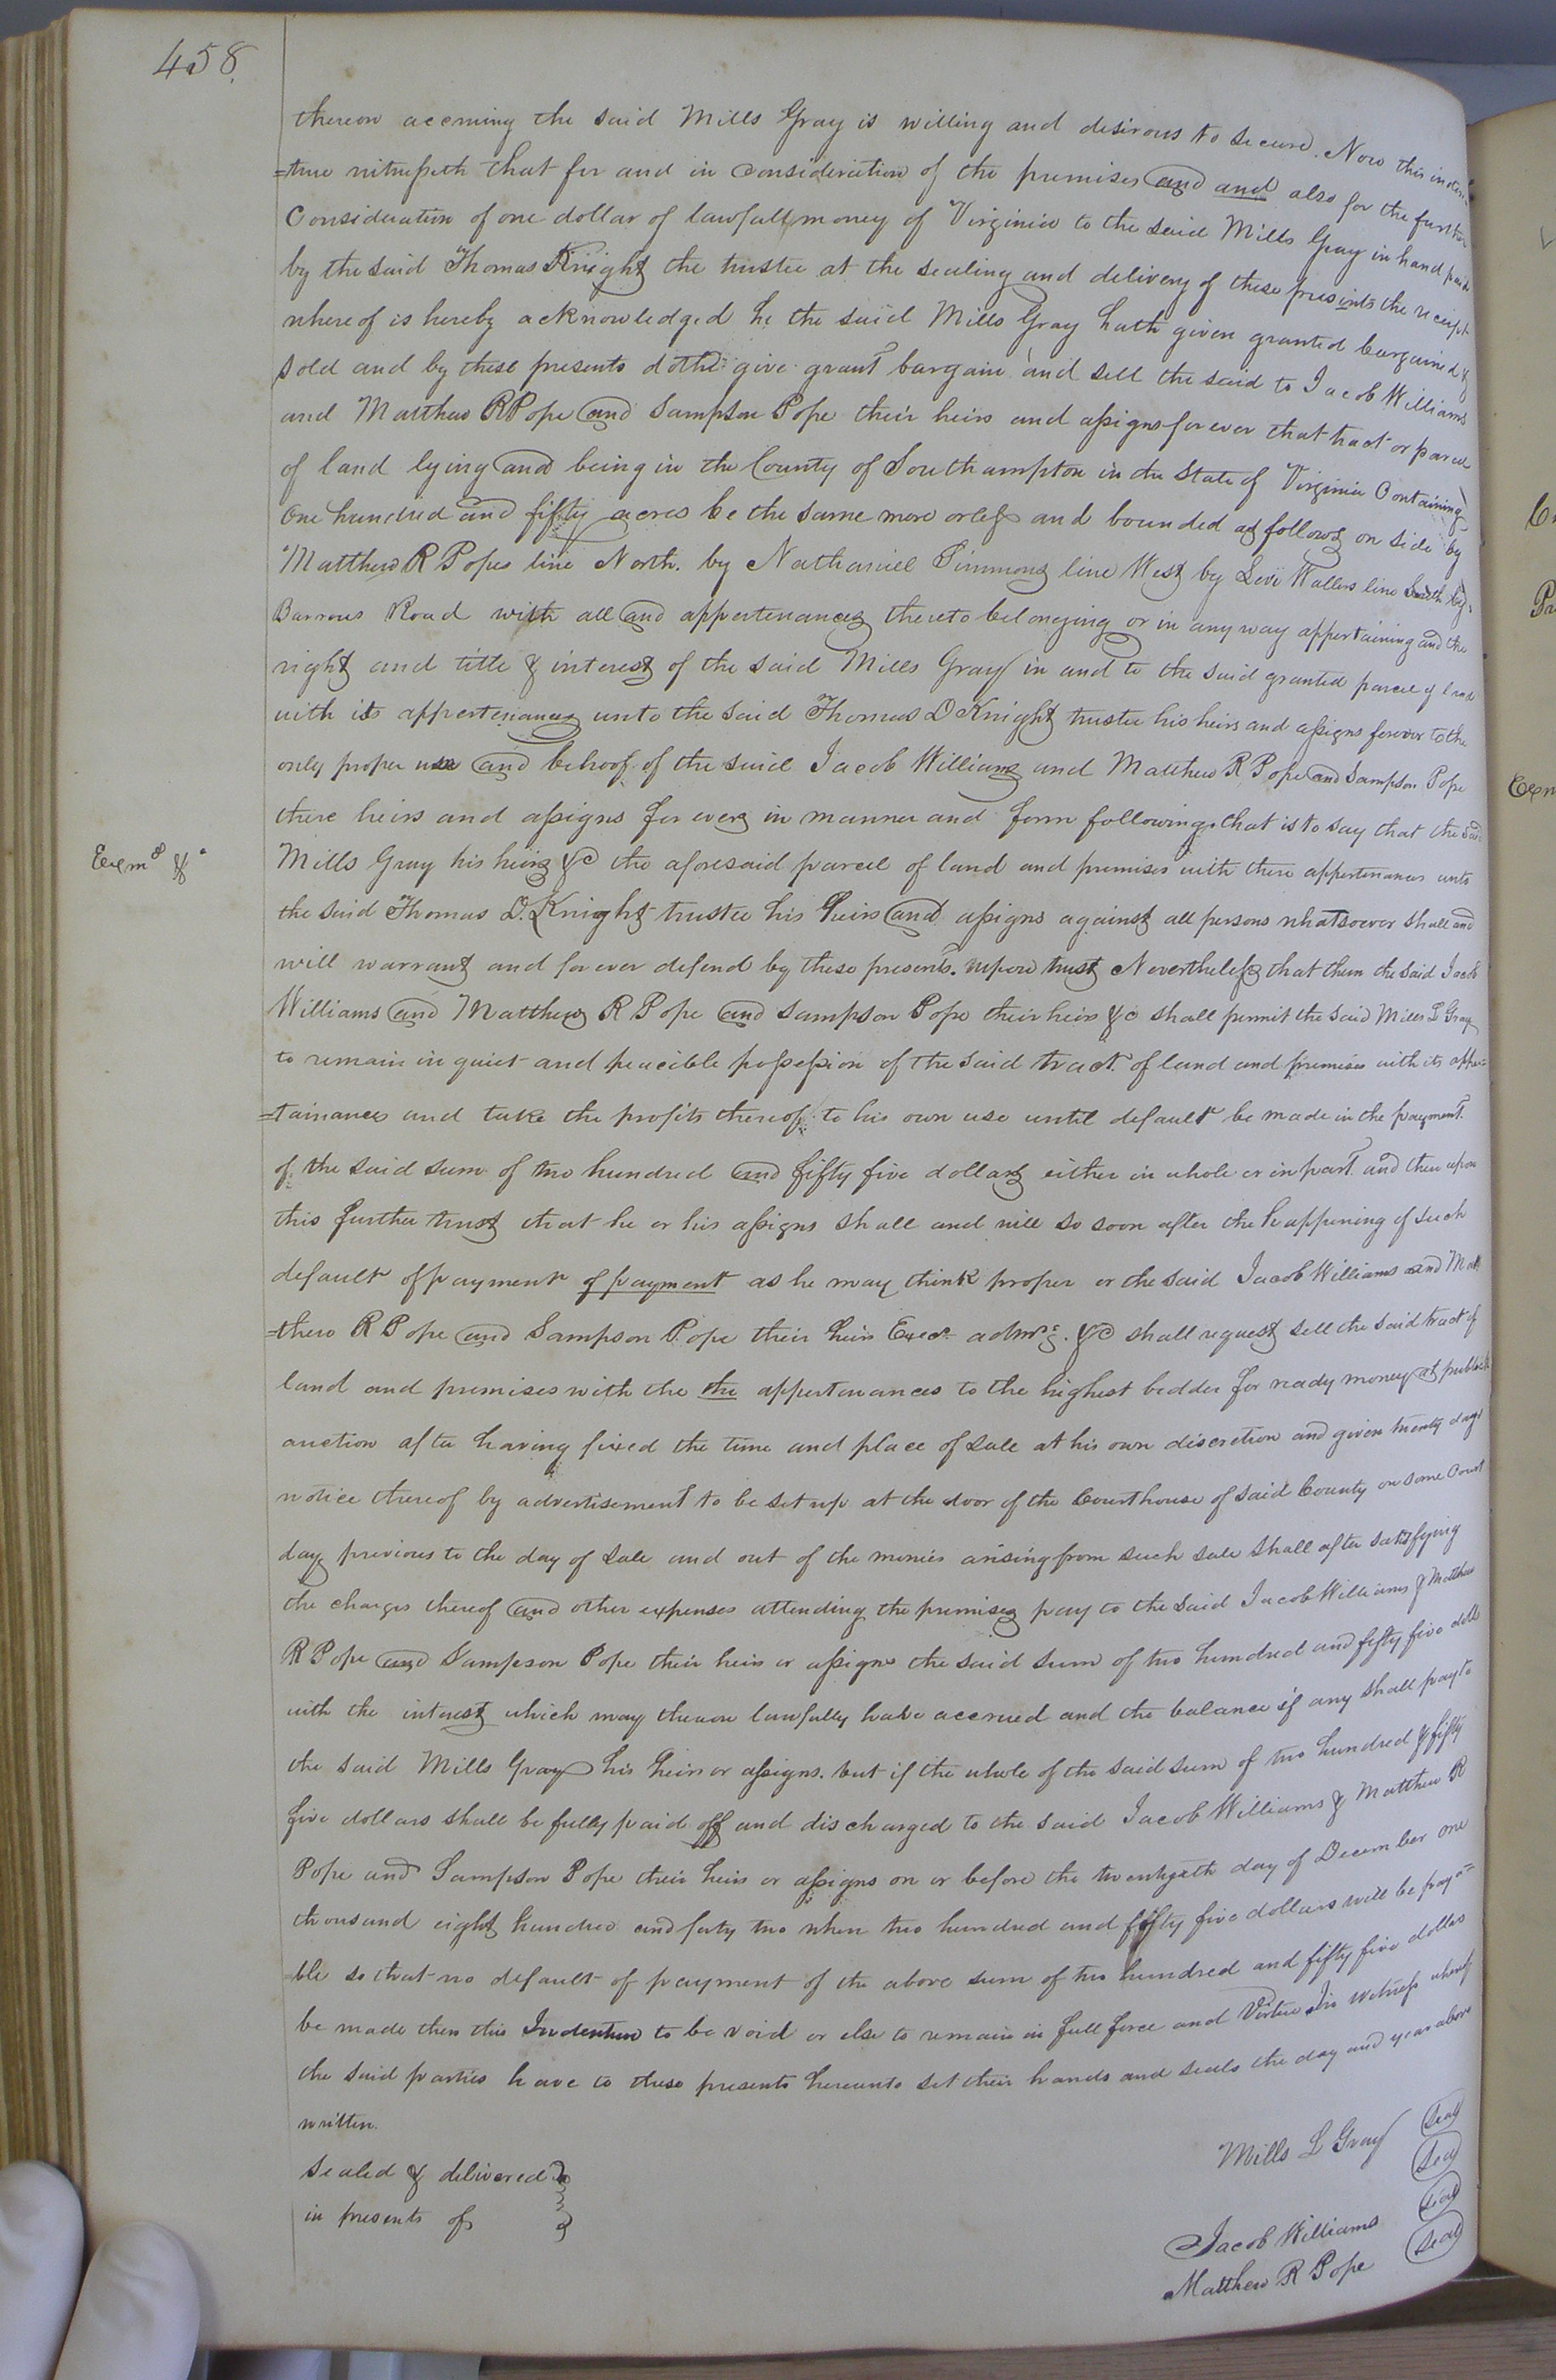 458.
thereon accruing the said Mills Gray is willing and desirous to secure. Now this inden
=ture witnesseth that for and in consideration of the premises and and also for the further
Consideration of one dollar of lawfull money of Virginia to the said Mills Gray in hand paid
by the said Thomas Knight the trustee at the sealing and delivery of these presents the receipt
whereof is hereby acknowledged he the said Mills Gray hath given granted bargained &
sold and by these presents dothe give grant bargain and sell the said to Jacob Williams
and Matthew R Pope and Sampson Pope their heirs and assigns forever that tract or parcel
of land lying and being in the County of Southampton in the State of Virginia Containing
One hundred and fifty acres be the same more or less and bounded as follows on side by
Matthew R Popes line North. by Nathaniel Simmons line West by Levi Wallers line South by
Barrows Road with all and appertenances thereto belonging or in any way appertaining and the
right and title & interest of the said Mills Gray in and to the said granted parcel of land
with its appertenances unto the said Thomas D Knight trustee his heirs and assigns forever to the
only proper use and behoof of the said Jacob Williams and Matthew R Pope and Sampson Pope
there heirs and assigns for ever in manner and form following that is to say that the said
Exmd &c
Mills Gray his heirs &c the aforesaid parcel of land and premises with there appertenances unto
the said Thomas D. Knight trustee his heirs and assigns against all persons whatsoever shall and
will warrant and forever defend by these presents. upon trust Nevertheless that them the said Jacob
Williams and Matthew R Pope and Sampson Pope their heirs &c shall permit the said Mills L Gray
to remain in quiet and peacible possession of the said tract of land and premises with its apper=
=tainances and take the profits thereof to his own use until default be made in the payment
of the said sum of two hundred and fifty five dollars either in whole or in part and then upon
this further trust that he or his assigns shall and will so soon after the happening of such
default of payment of payment as he may think proper or the said Jacob Williams and Mat
=thew R Pope and Sampson Pope their heirs Execs admrs. &c shall request sell the said tract of
land and premises with the the appertenances to the highest bedder for ready money at publick
auction after having fixed the time and place of sale at his own discretion and given twenty days
notice thereof by advertisement to be set up at the door of the Courthouse of said County on some Court
day previous to the day of sale and out of the monies arising from such sale shall after satisfying
the charges thereof and other expenses attending the premises pay to the said Jacob Williams & Matthew
R Pope and Sampson Pope their heirs or assigns the said sum of two hundred and fifty five dolls
with the interest which may thereon lawfully have accrued and the balance if any shall pay to
the said Mills Gray his heirs or assigns. but if the whole of the said sum of two hundred & fifty
five dollars shall be fully paid off and discharged to the said Jacob Williams & Matthew R
Pope and Sampson Pope their heirs or assigns on or before the day of December one
thousand eight hundred and forty two when two hundred and fifty five dollars will be paya=
=ble so that no default of payment of the above sum of two hundred and fifty five dollars
be made then this Indenture to be void or else to remain in full force and Virtue In witness whereof
the said parties have to these presents hereunto set their hands and seals the day and year above
written.
Sealed & delivered
in presents of
Mills L Gray (Seal)
(Seal)
Jacob Williams (Seal)
Matthew R Pope (Seal)